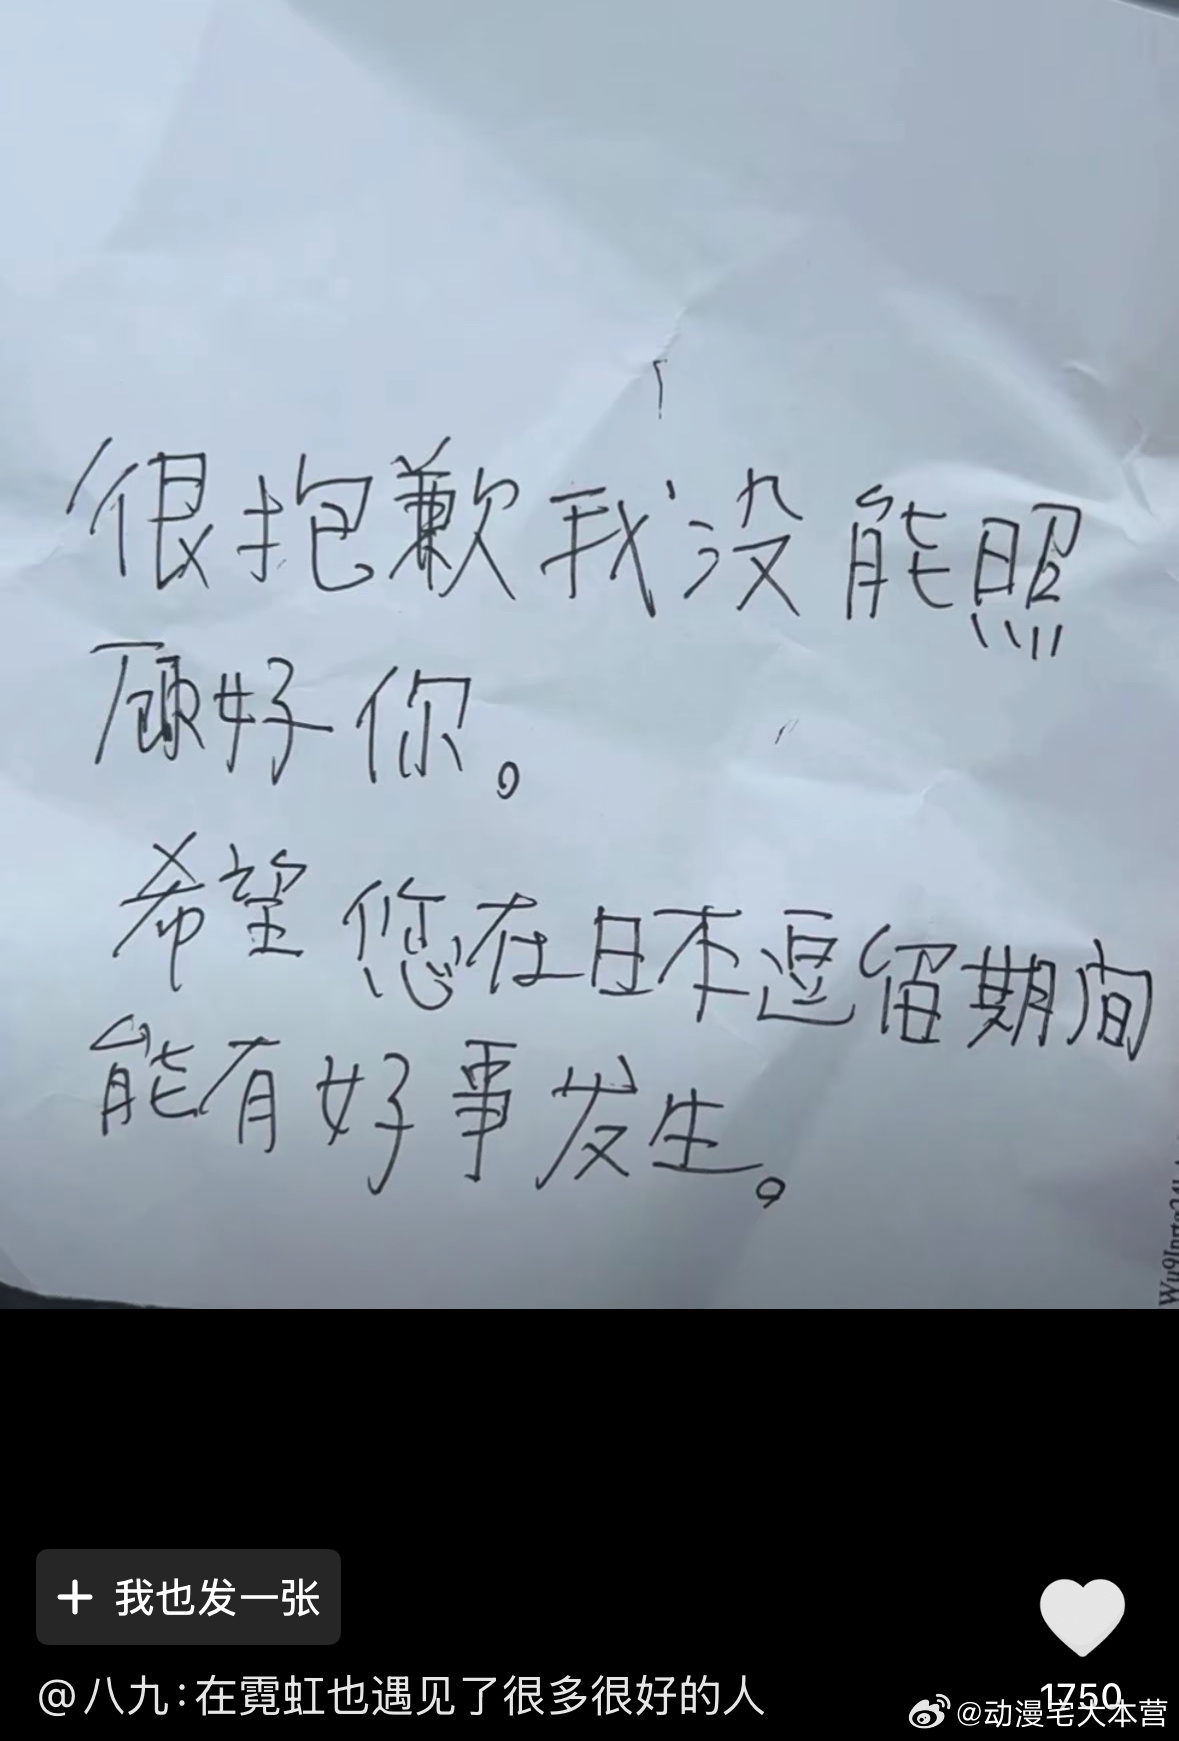 很抱歉我没能照
顾好你。
希望您在日本逗留期间
能有好事发生。
+ 我也发一张
@八九:在霓虹也遇见了很多很好的人
1750
@动漫宅大本营